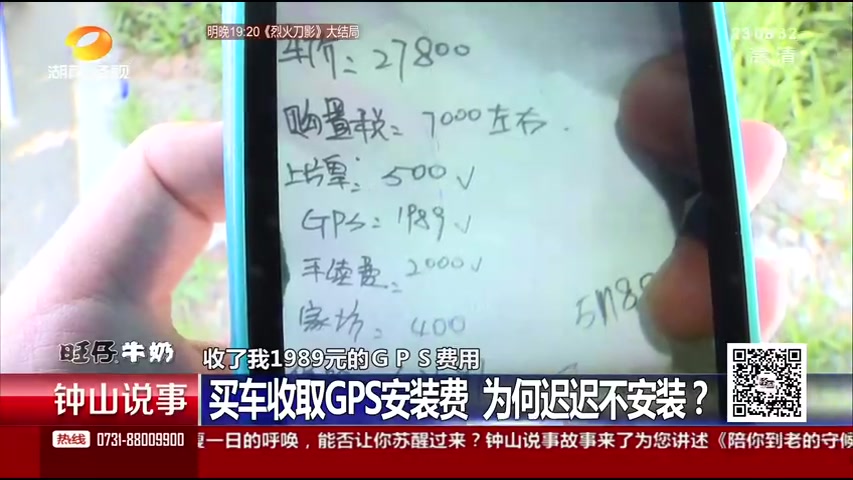 明晚19:20《烈火刀影》大结局
湖南经视
高清
车价：27800
购置税：7000左右.
上户票：500√
GPS：1989√
手续费：2000√
400
旺仔牛奶
收了我1989元的ＧＰＳ费用
钟山说事
买车收取GPS安装费 为何迟迟不安装？
热线 0731-88009900
夏一日的呼唤，能否让你苏醒过来？钟山说事故事来了为您讲述《陪你到老的守候